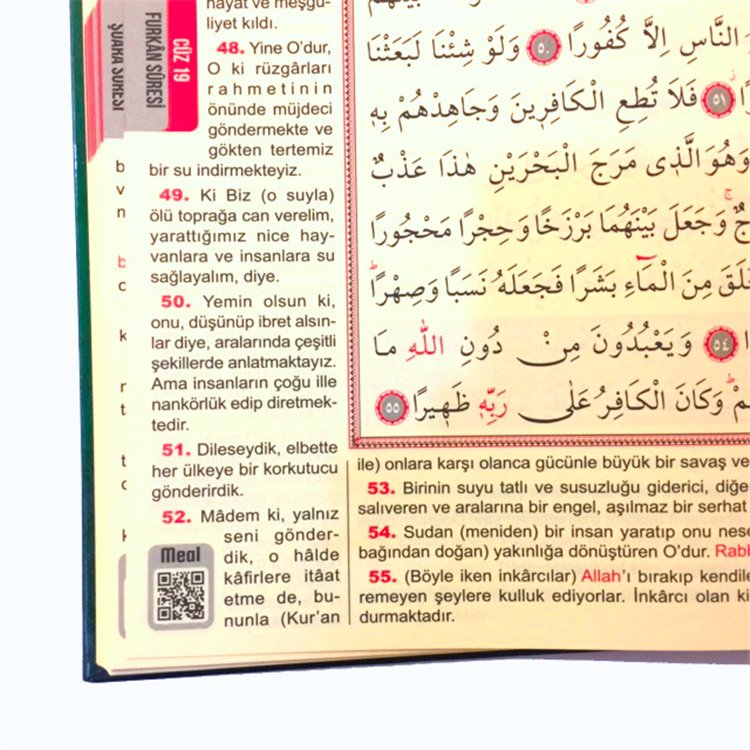 CÜZ 19
FURKÂN SÛRESİ
hayat ve meşgu-
liyet kıldı.
48. Yine O'dur,
O ki rüzgârları
rahmetinin
önünde müjdeci
göndermekte ve
gökten tertemiz
bir su indirmekteyiz.
49. Ki Biz (o suyla)
ölü toprağa can verelim,
yarattığımız nice hay-
vanlara ve insanlara su
sağlayalım, diye.
50. Yemin olsun ki,
onu, düşünüp ibret alsın-
lar diye, aralarında çeşitli
şekillerde anlatmaktayız.
Ama insanların çoğu ille
nankörlük edip diretmek-
tedir.
51. Dileseydik, elbette
her ülkeye bir korkutucu
gönderirdik.
52. Mâdem ki, yalnız
seni gönder-
dik, o hâlde
kâfirlere itâat
etme de, bu-
nunla (Kur'an
Meal
النَّاسِ اِلَّا كُفُورًا ٥٠ وَلَوْ شِئْنَا لَبَعَثْنَا
٥١ فَلَا تُطِعِ الْكَافِرٖينَ وَجَاهِدْهُمْ بِهٖ
وَهُوَ الَّذٖى مَرَجَ الْبَحْرَيْنِ هٰذَا عَذْبٌ
وَجَعَلَ بَيْنَهُمَا بَرْزَخًا وَحِجْرًا مَحْجُورًا
خَلَقَ مِنَ الْمَٓاءِ بَشَرًا فَجَعَلَهُ نَسَبًا وَصِهْرًا
٥٤ وَيَعْبُدُونَ مِنْ دُونِ اللّٰهِ مَا
وَكَانَ الْكَافِرُ عَلٰى رَبِّهٖ ظَهٖيرًا ٥٥
ile) onlara karşı olanca gücünle büyük bir savaş ve
53. Birinin suyu tatlı ve susuzluğu giderici, diğe
salıveren ve aralarına bir engel, aşılmaz bir serhat
54. Sudan (meniden) bir insan yaratıp onu nese
bağından doğan) yakınlığa dönüştüren O'dur. Rabb
55. (Böyle iken inkârcılar) Allah'ı bırakıp kendile
remeyen şeylere kulluk ediyorlar. İnkârcı olan ki
durmaktadır.